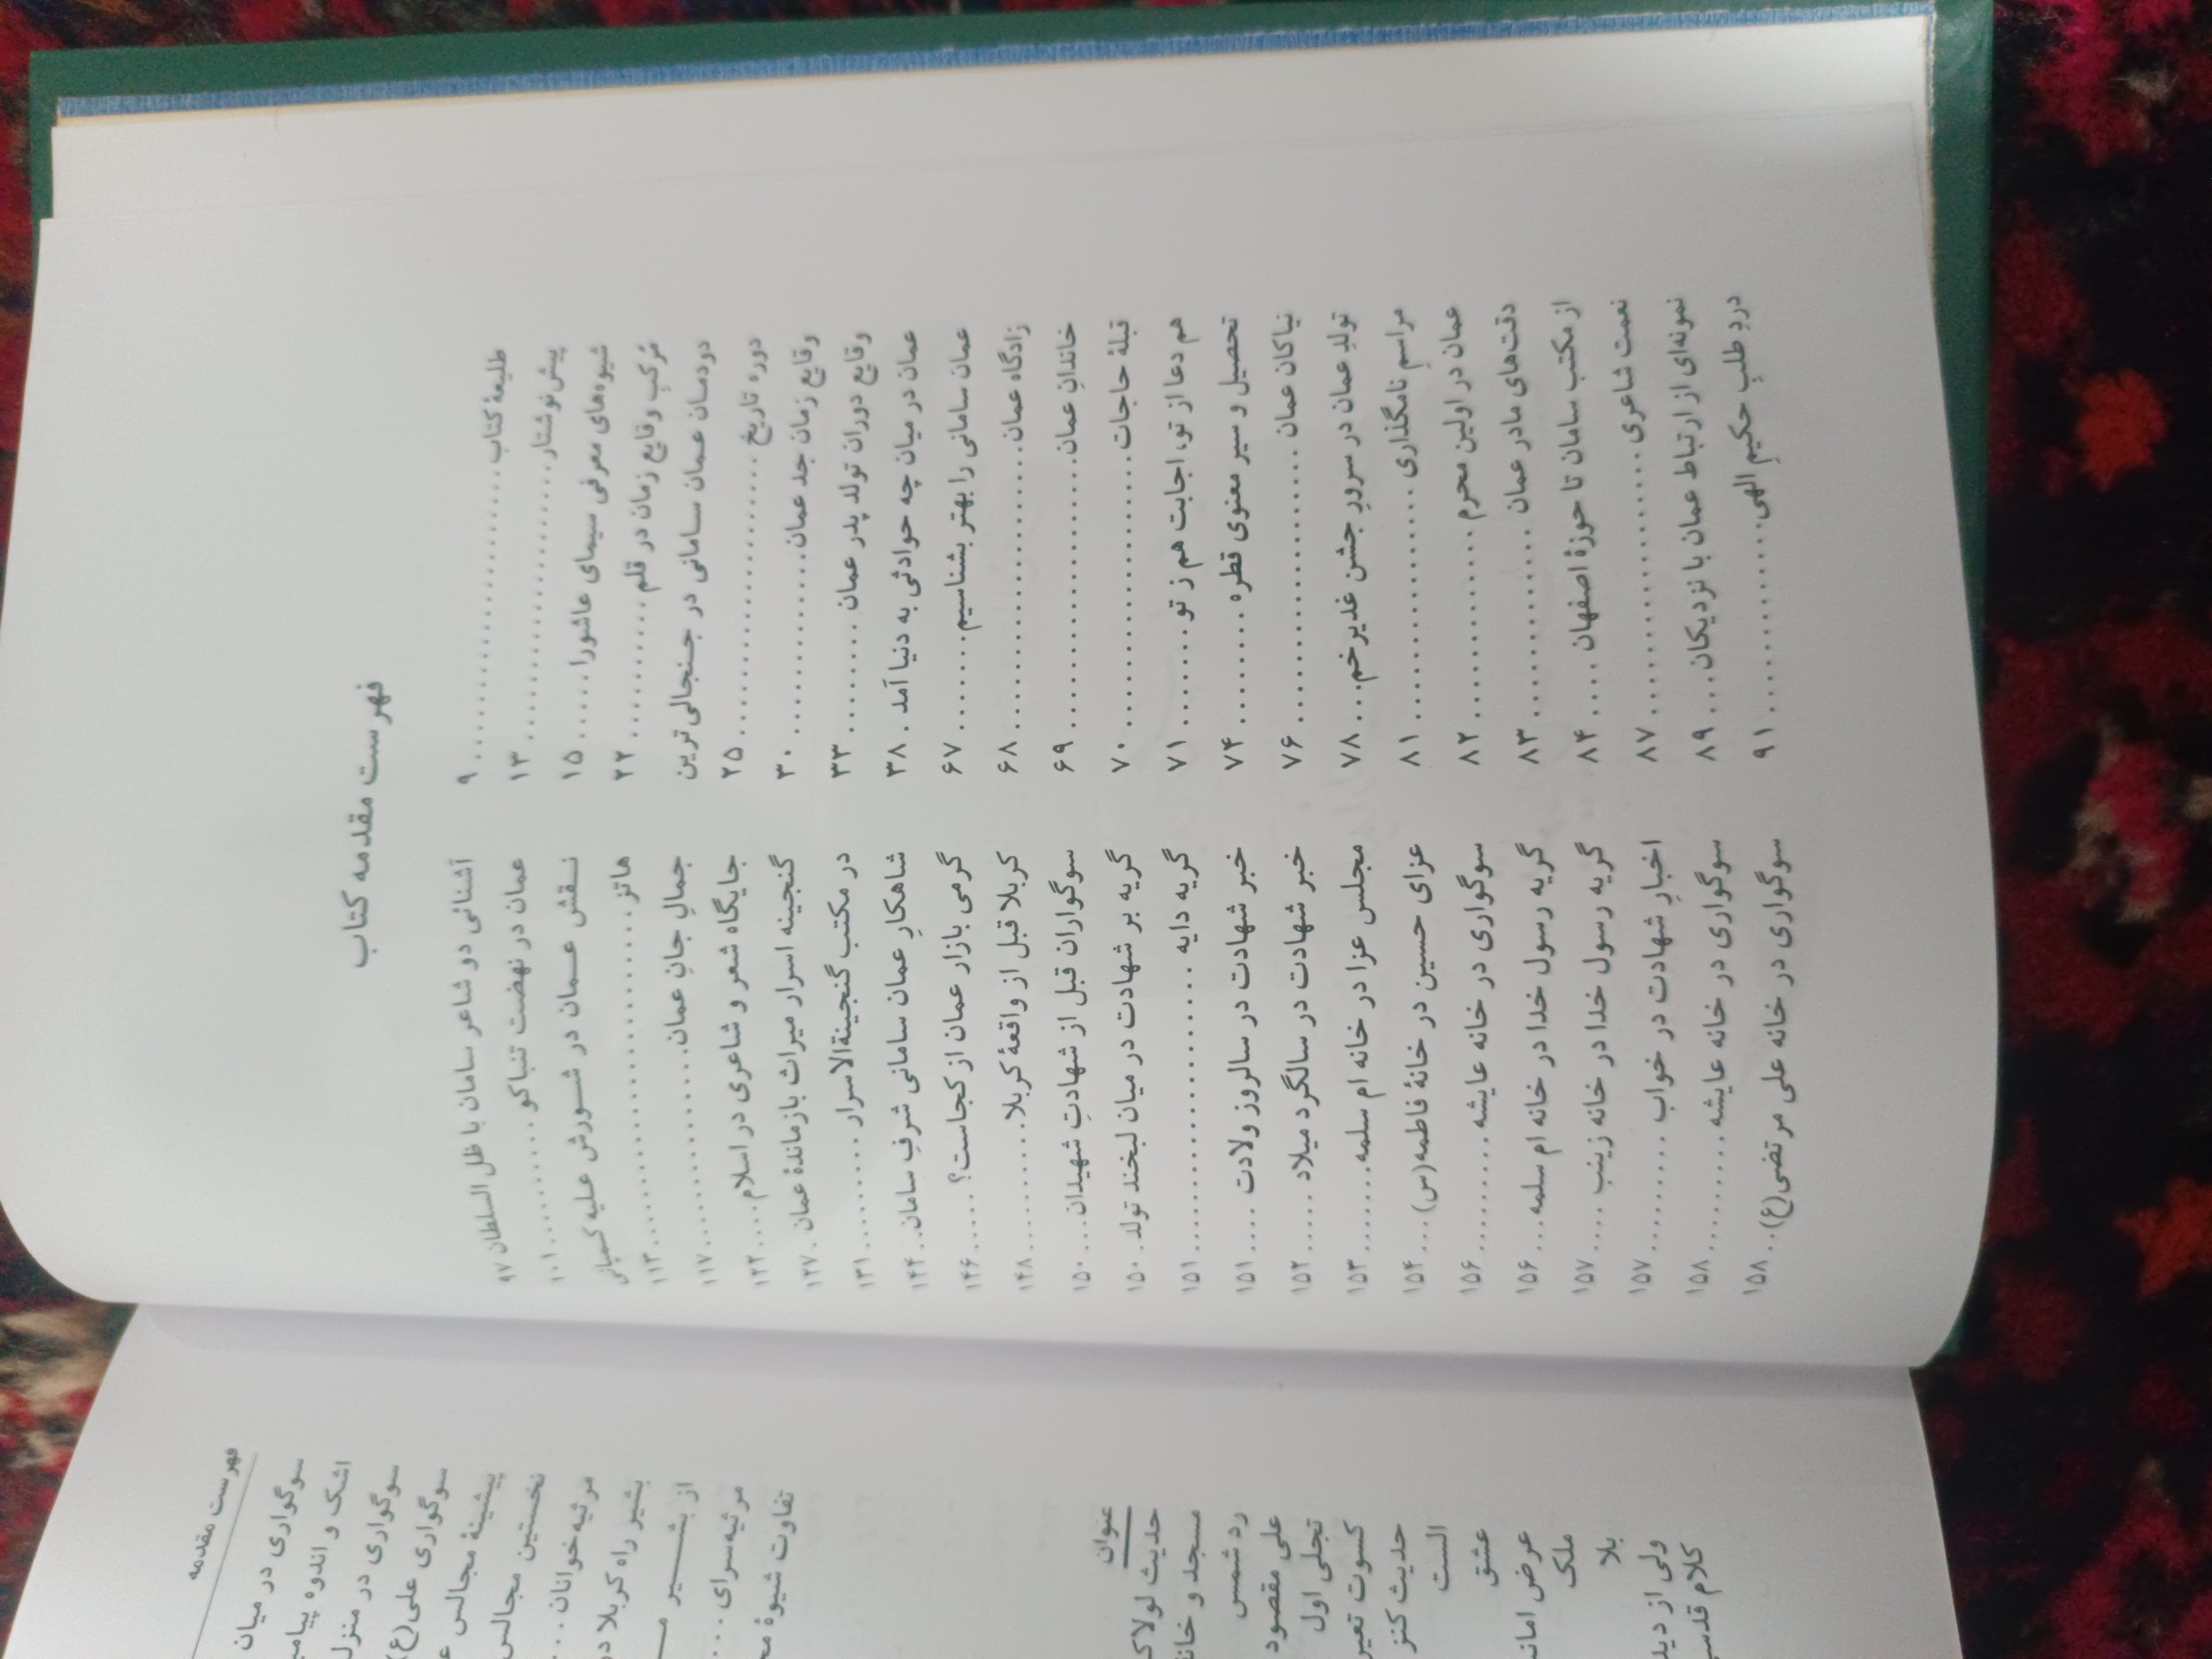 فهرست مقدمه کتاب
طلیعهٔ کتاب .......................... ۹
پیش‌نوشتار .......................... ۱۳
شیوه‌های معرفی سیمای عاشورا ..... ۱۵
مُرکبِ وقایع زمان در قلم .......... ۲۲
دودمان عمان سامانی در جنجالی ترین
دوره تاریخ .......................... ۲۵
وقایع زمان جد عمان ................. ۳۰
وقایع دوران تولد پدر عمان ......... ۳۳
عمان در میان چه حوادثی به دنیا آمد . ۳۸
عمان سامانی را بهتر بشناسیم ....... ۶۷
زادگاه عمان .......................... ۶۸
خاندانِ عمان .......................... ۶۹
قبلهٔ حاجات .......................... ۷۰
هم دعا از تو، اجابت هم ز تو ........ ۷۱
تحصیل و سیر معنوی قطره ......... ۷۴
نیاکان عمان .......................... ۷۶
تولدِ عمان در سرورِ جشن غدیر خم ... ۷۸
مراسمِ نامگذاری ..................... ۸۱
عمان در اولین محرم ................ ۸۲
دقت‌های مادر عمان ................. ۸۳
از مکتب سامان تا حوزهٔ اصفهان .... ۸۴
نعمت شاعری ........................ ۸۷
نمونه‌ای از ارتباط عمان با نزدیکان ... ۸۹
دردِ طلبِ حکیمِ الهی ................. ۹۱
آشنائی دو شاعر سامان با ظل السلطان ۹۷
عمان در نهضت تنباکو .............. ۱۰۱
نـقش عـمان در شـورش علیه کـمپانی
هاتز ................................. ۱۱۳
جمالِ جانِ عمان ..................... ۱۱۷
جایگاه شعر و شاعری در اسلام ..... ۱۲۲
گنجینه اسرار میراث بازماندهٔ عمان . ۱۲۷
در مکتب گنجینةالاسرار ............ ۱۳۱
شاهکارِ عمان سامانی شرفِ سامان .. ۱۴۴
گرمی بازار عمان از کجاست؟ ...... ۱۴۶
کربلا قبل از واقعهٔ کربلا ............ ۱۴۸
سوگواران قبل از شهادتِ شهیدان .... ۱۵۰
گریه بر شهادت در میان لبخند تولد .. ۱۵۰
گریه دایه ............................ ۱۵۱
خبر شهادت در سالروز ولادت ..... ۱۵۱
خبر شهادت در سالگرد میلاد ...... ۱۵۲
مجلس عزا در خانه ام سلمه ......... ۱۵۳
عزای حسین در خانهٔ فاطمه(س) ... ۱۵۴
سوگواری در خانه عایشه ........... ۱۵۶
گریه رسول خدا در خانه ام سلمه ... ۱۵۶
گریه رسول خدا در خانه زینب ..... ۱۵۷
اخبارِ شهادت در خواب ............ ۱۵۷
سوگواری در خانه عایشه ........... ۱۵۸
سوگواری در خانه علی مرتضی(ع) .. ۱۵۸
فهرست مقدمه
سوگواری در میان
اشک و اندوه
سوگواری در منزل
سوگواری علی(ع)
پیشینهٔ مجالس
نخستین مجالس
مرثیه‌خوانان ....
بشیر راه کربلا
از بشـــیر
مرثیه‌سرای ....
تفاوت شیوهٔ
عنوان
حدیث لولاک
مسجد و
رد شمس
علی مقصود
تجلی اول
کسوت
حدیث کنز
الست
عشق
عرض
ملک
بلا
ولی از
کلام